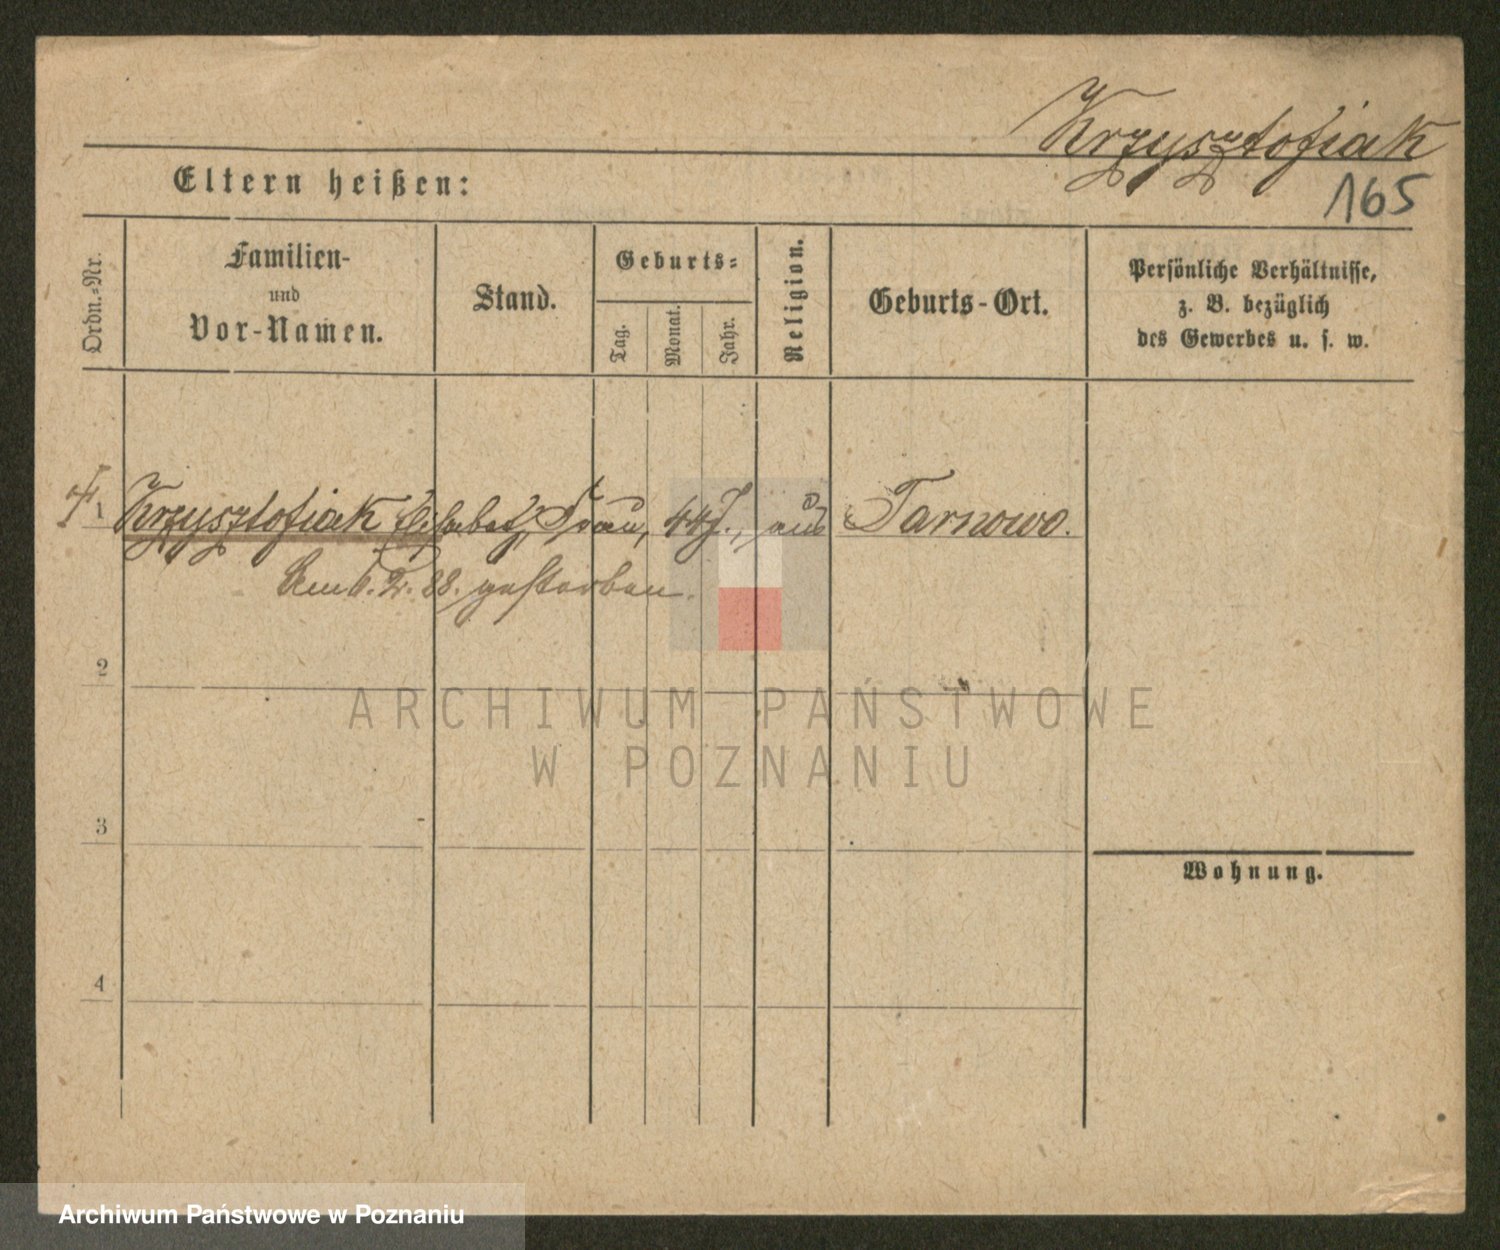 Krzysztofiak
165
Eltern heißen:
Ordn.-Nr.
Familien-
und
Vor-Namen.
Stand.
Geburts-
Tag.
Monat.
Jahr.
Religion.
Geburts-Ort.
Persönliche Verhältnisse,
z. B. bezüglich
des Gewerbes u. s. w.
1 Krzysztofiak Elisabeth, Frau, 44 J., aus Tarnowo.
Am 6. 2. 88. gestorben.
2
ARCHIWUM PAŃSTWOWE
W POZNANIU
3
Wohnung.
4
Archiwum Państwowe w Poznaniu